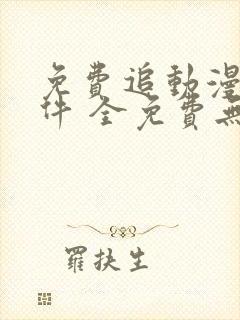 免費追動漫
件 全免費無
羅扶生